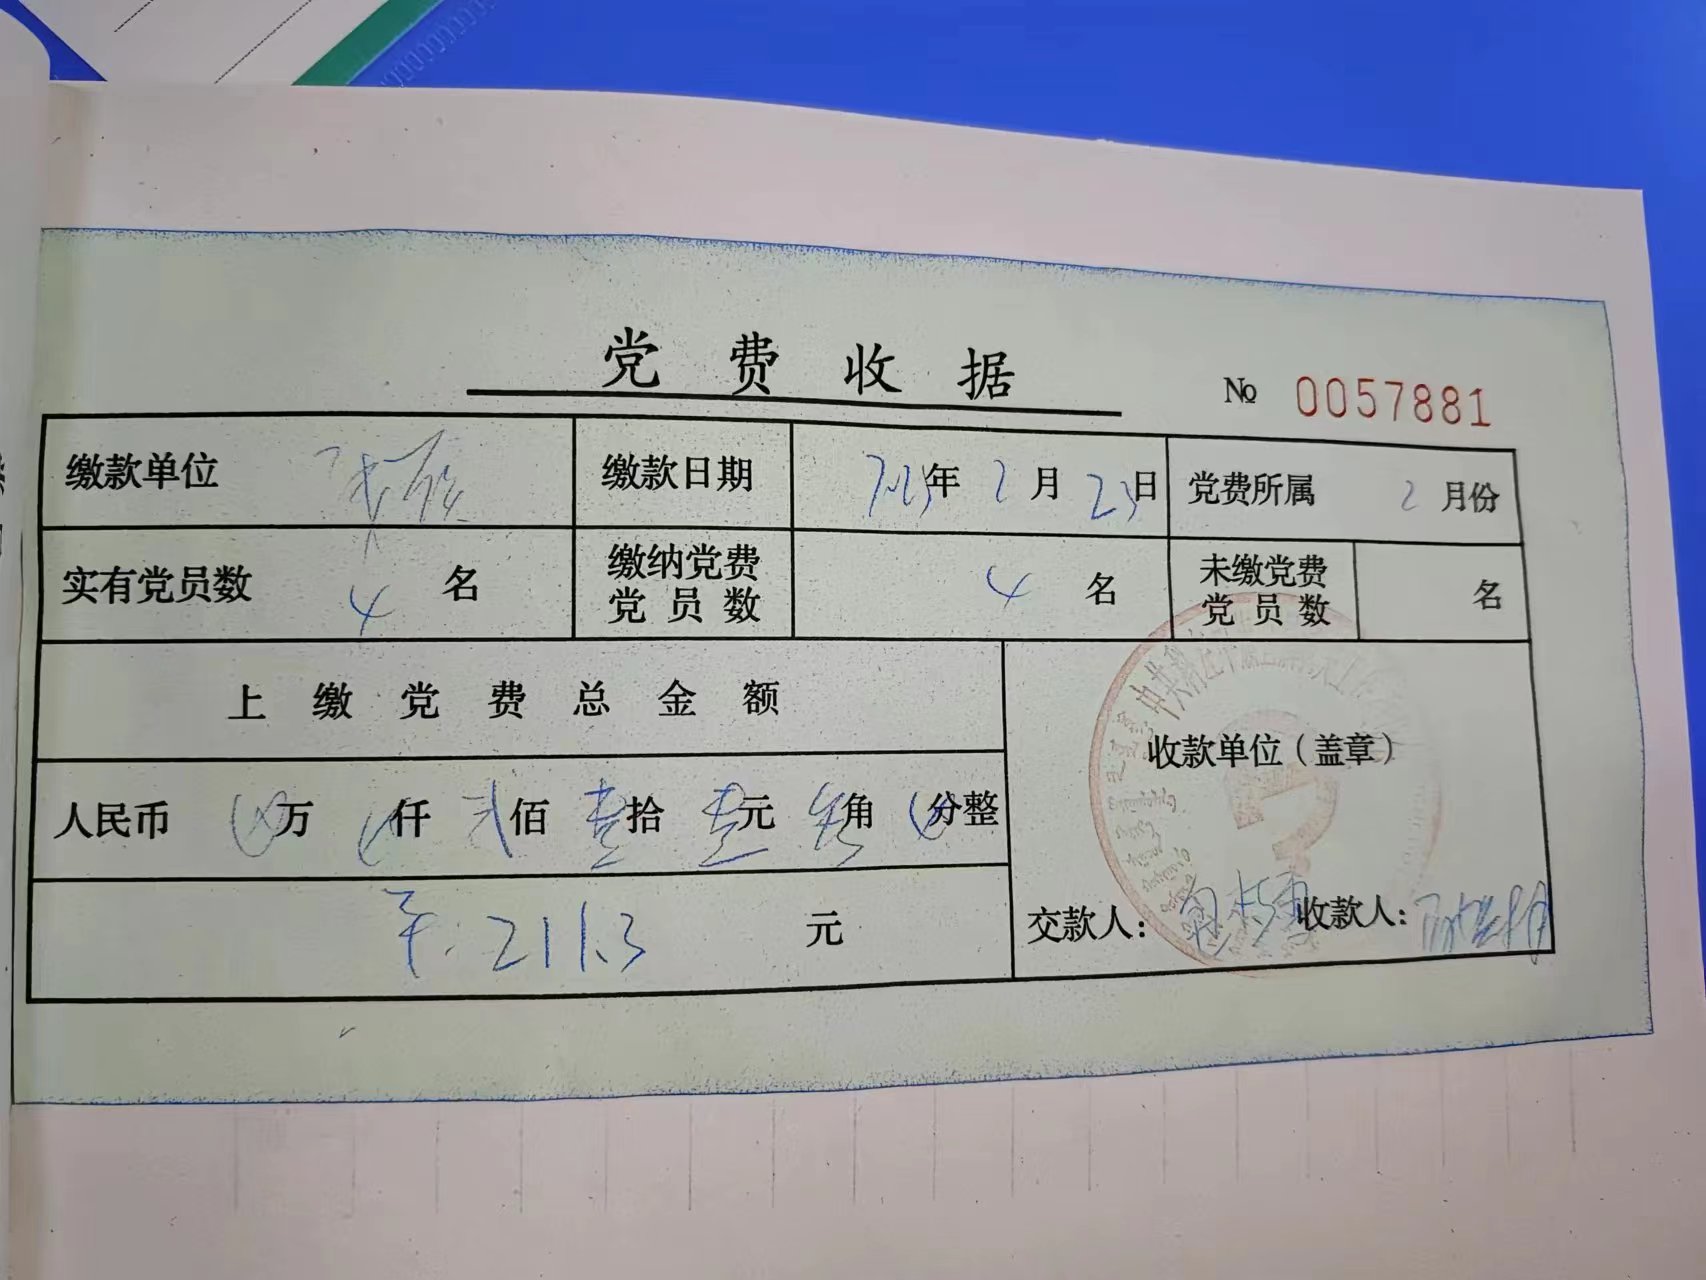 党费收据
№ 0057881
缴款单位 缴款日期 2023年2月23日 党费所属 2月份
实有党员数 4 名 缴纳党费党员数 4 名 未缴党费党员数 名
上缴党费总金额
收款单位（盖章）
人民币 万 仟 贰佰 壹拾 壹元 叁角 分整
211.3 元
交款人： 收款人：